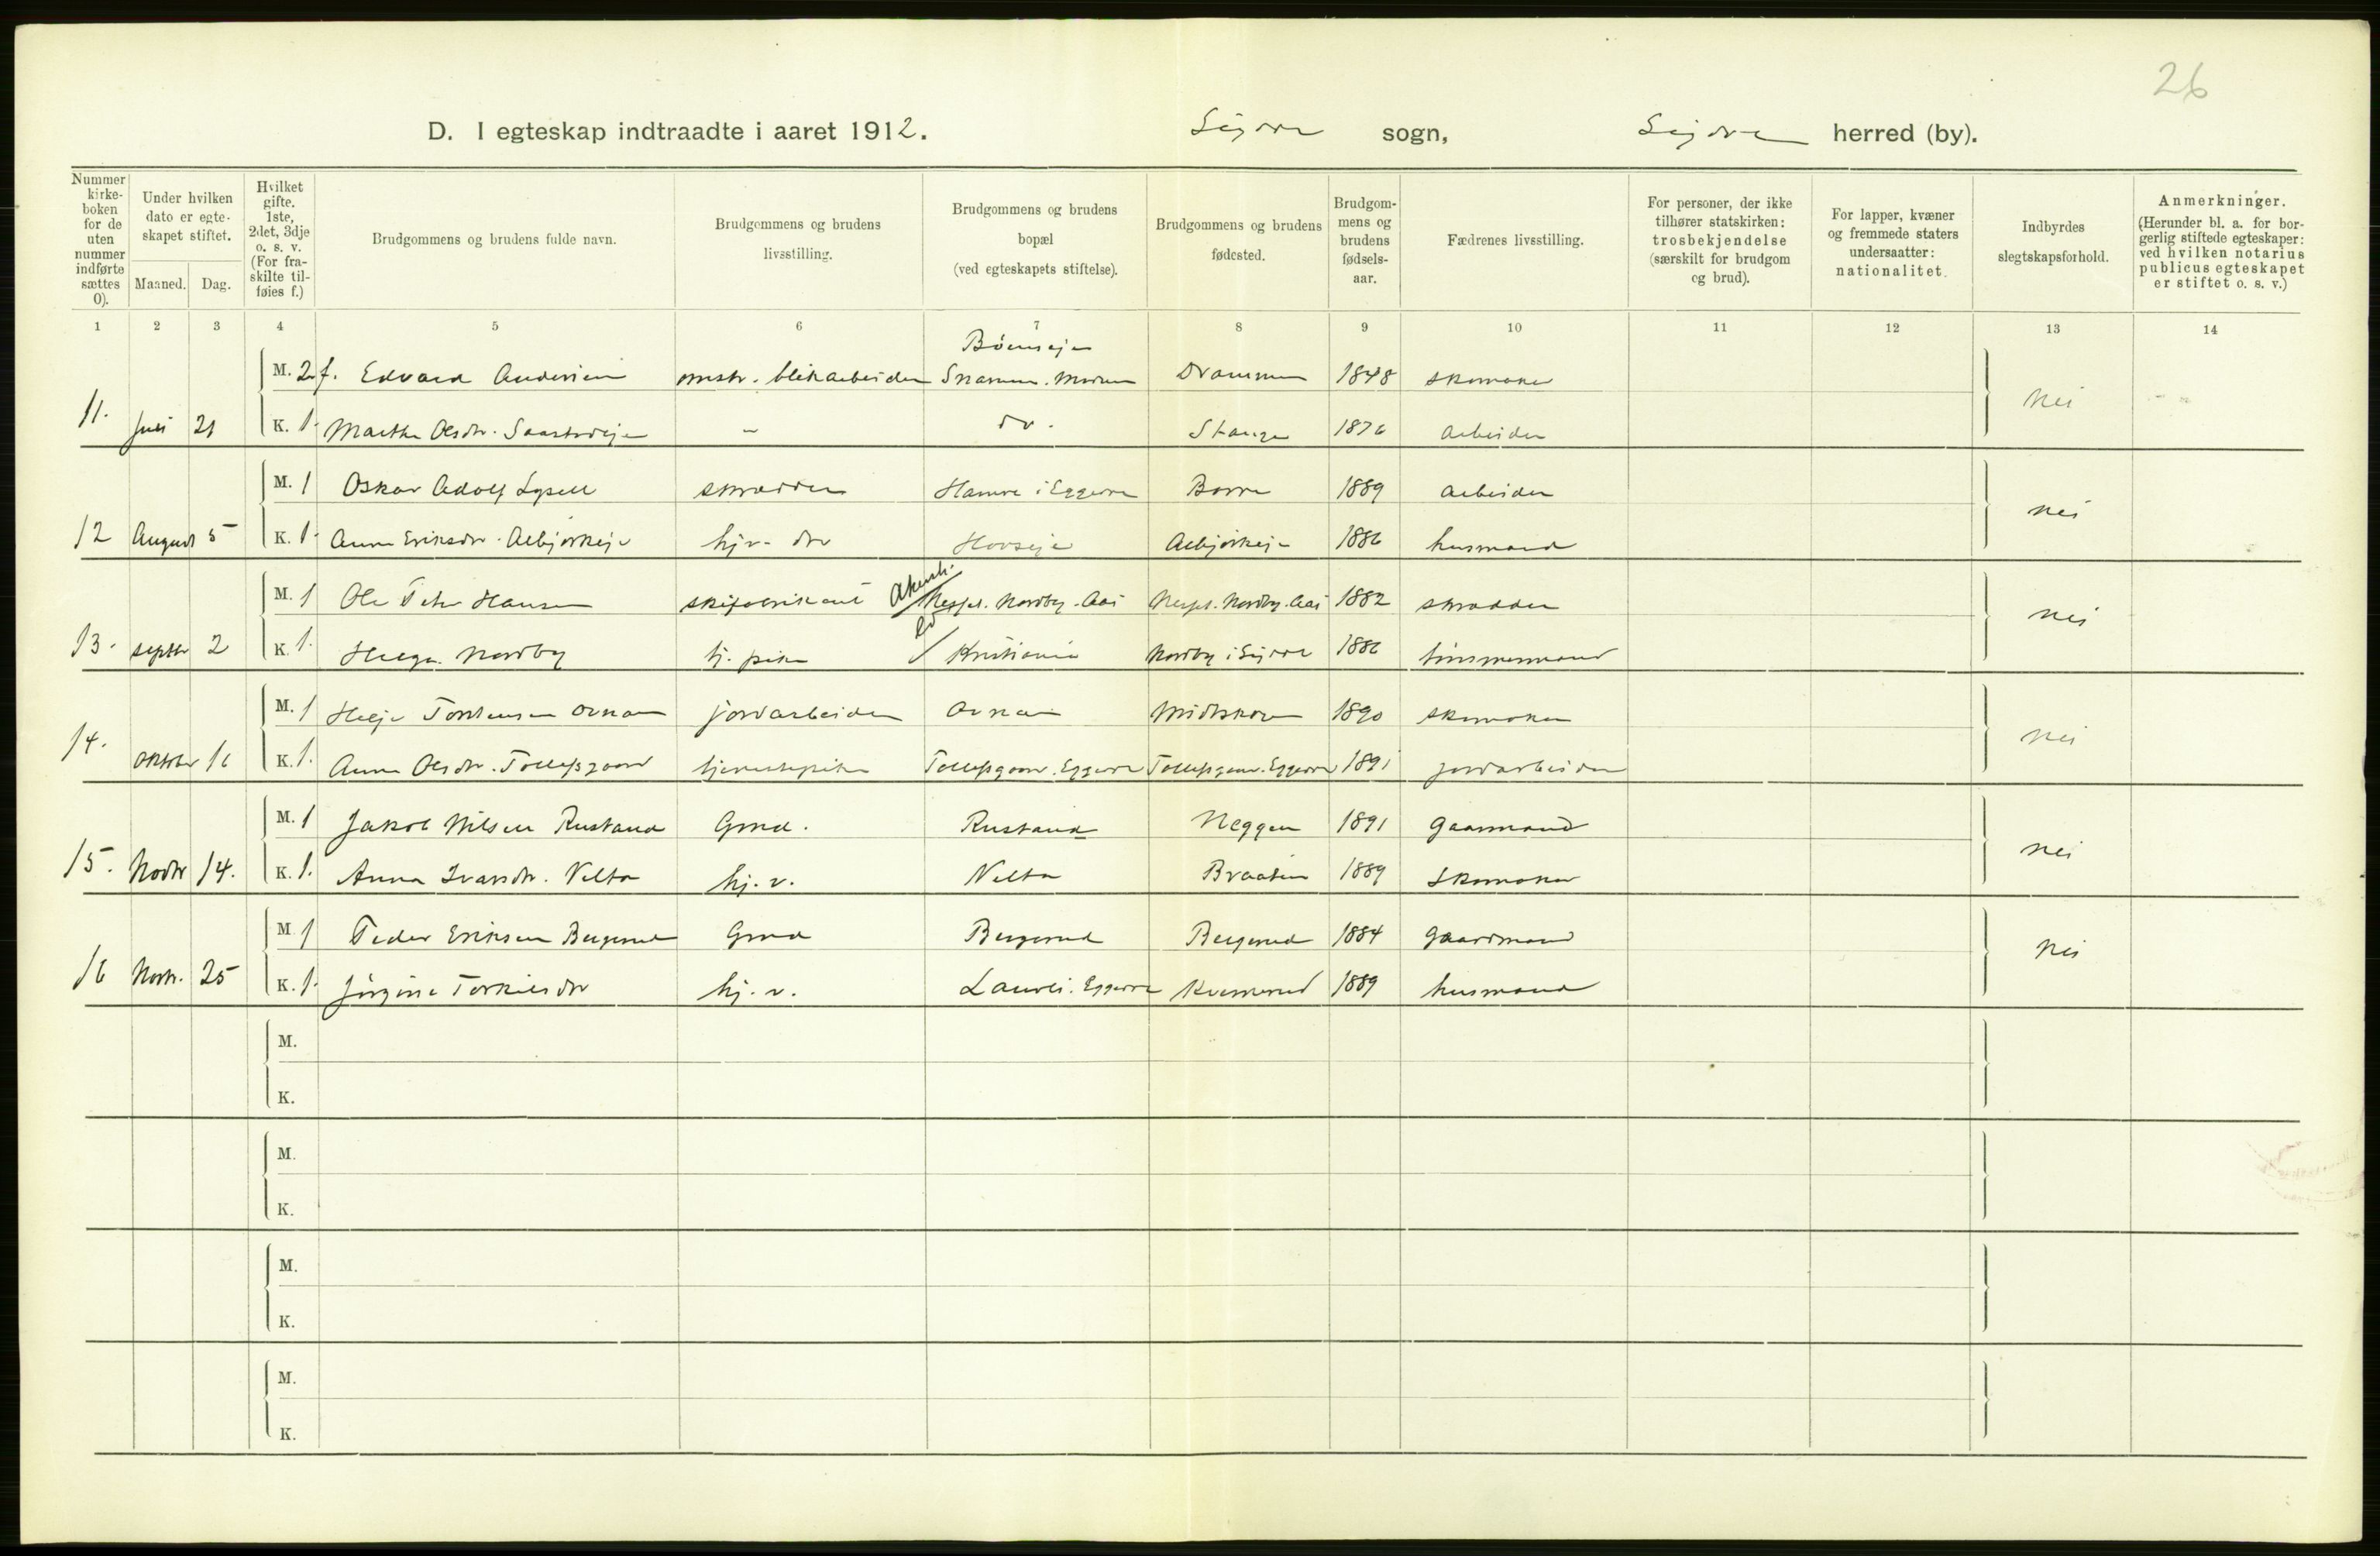 26
D. I egteskap indtraadte i aaret 1912. sogn, herred (by).
Nummer kirke-boken for de uten nummer indførte sættes 0).
Under hvilken dato er egte-skapet stiftet.
Maaned. Dag.
Hvilket gifte. 1ste, 2det, 3dje o. s. v. (For fra-skilte til-føies f.)
Brudgommens og brudens fulde navn.
Brudgommens og brudens livsstilling.
Brudgommens og brudens bopæl (ved egteskapets stiftelse).
Brudgommens og brudens fødested.
Brudgom-mens og brudens fødsels-aar.
Fædrenes livsstilling.
For personer, der ikke tilhører statskirken: trosbekjendelse (særskilt for brudgom og brud).
For lapper, kvæner og fremmede staters undersaatter: nationalitet.
Indbyrdes slegtskapsforhold.
Anmerkninger. (Herunder bl. a. for bor-gerlig stiftede egteskaper: ved hvilken notarius publicus egteskapet er stiftet o. s. v.)
1 2 3 4 5 6 7 8 9 10 11 12 13 14
M. 2 f. Edvard Andersen blikarbeider Snarum. Modum Drammen 1848 skomaker
11. Juli 21 K. 1. Marthe Olsdtr. do. Stange 1876 arbeider nei
M. 1 Oskar Adolf skrædder Hamre i Eggedal Borre 1889 arbeider
12 August 5 K. 1. Anne Eriksdtr. Hovseje 1886 husmand nei
M. 1 Ole Peter Hansen skifabrikant Akersh. Nordby. Aas Nordby. Aas 1882 skrædder
13. septbr 2 K. 1. Helga Nordby tj. pike Kristiania Nordby i 1886 nei
M. 1 Helje Torstensen jordarbeider Midtskogen 1890 skomaker
14. oktober 16 K. 1. Anne Olsdtr. Tollefsgaard tjenestepike Tollefsgaard. Eggedal Tollefsgaard. Eggedal 1891 jordarbeider nei
M. 1 Jakob Nilsen Rustand Gmd. Rustand Neggen 1891 gaarmand
15. Novbr 14. K. 1. Anna Ivarsdtr. Velta hj. v. Velta Braaten 1889 skomaker nei
M. 1 Peder Eriksen Bergerud Gmd Bergerud Bergerud 1884 gaardmand
16 Novbr. 25 K. 1. Jørgine Torkilsdtr hj. v. Eggedal 1889 husmand nei
M.
K.
M.
K.
M.
K.
M.
K.